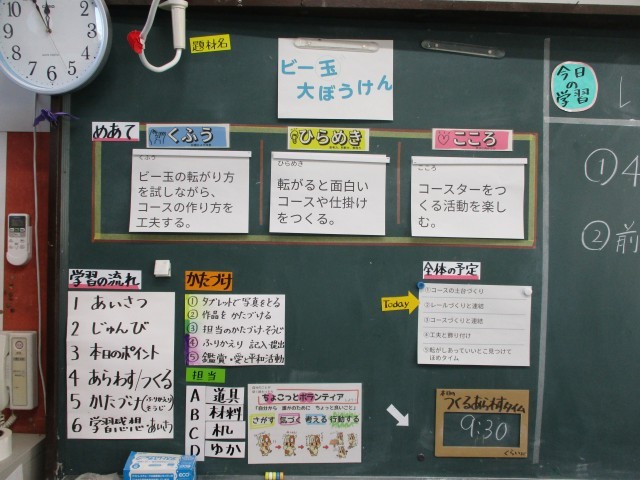 題材名
ビー玉
大ぼうけん
今日の学習
めあて
くふう
ひらめき
こころ
くふう
ビー玉の転がり方
を試しながら、
コースの作り方を
工夫する。
ひらめき
転がると面白い
コースや仕掛け
をつくる。
こころ
コースターをつ
くる活動を楽し
む。
① 4
② 前
学習の流れ
1 あいさつ
2 じゅんび
3 本日のポイント
4 あらわす/つくる
5 かたづけ(ふりかえり そうじ)
6 学習感想 あいさつ
かたづけ
① タブレットで写真をとる
② 作品をかたづける
③ 担当のかたづけ・そうじ
④ ふりかえり 記入・提出
⑤ 鑑賞・愛と平和活動
担当
A 道具
B 材料
C 机
D ゆか
ちょこっとボランティア
「自分から 誰かのために ちょっと良いこと」
さがす 気づく 考える 行動する
全体の予定
Today
①コースの土台づくり
②レールづくりと連結
③コースづくりと連結
④工夫と飾り付け
⑤転がしあっていいとこ見つけて
ほめタイム
つくるあらわすタイム
9:30
くらいに